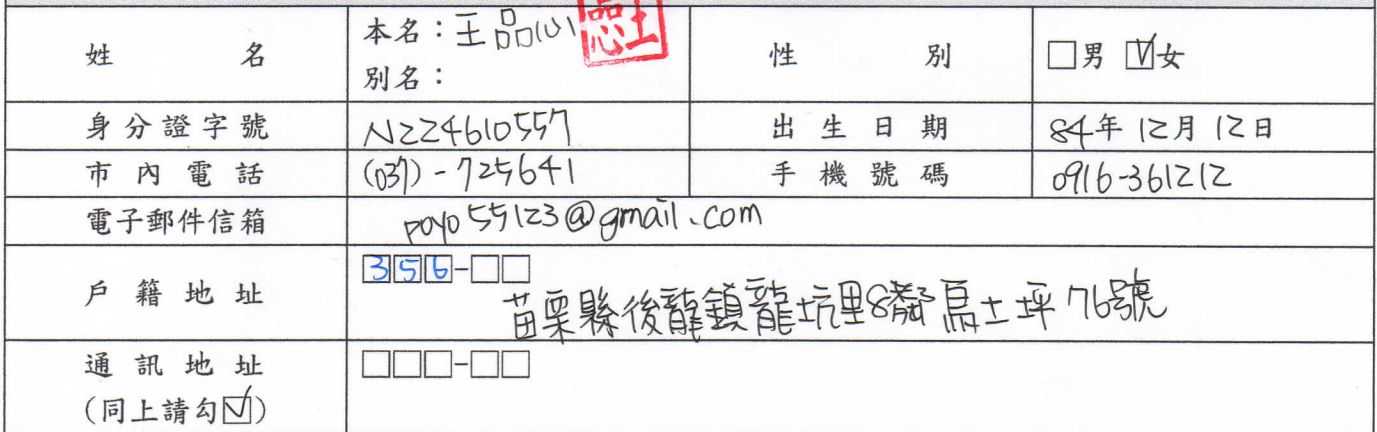 姓 名 本名：王品心 性 別 □男 ☑女
別名：
身分證字號 N224610557 出生日期 84年12月12日
市內電話 (037)-725641 手機號碼 0916-361212
電子郵件信箱 poyo55123@gmail.com
戶籍地址 356-□□
苗栗縣後龍鎮龍坑里8鄰烏土坪76號
通訊地址 □□□-□□
(同上請勾☑)